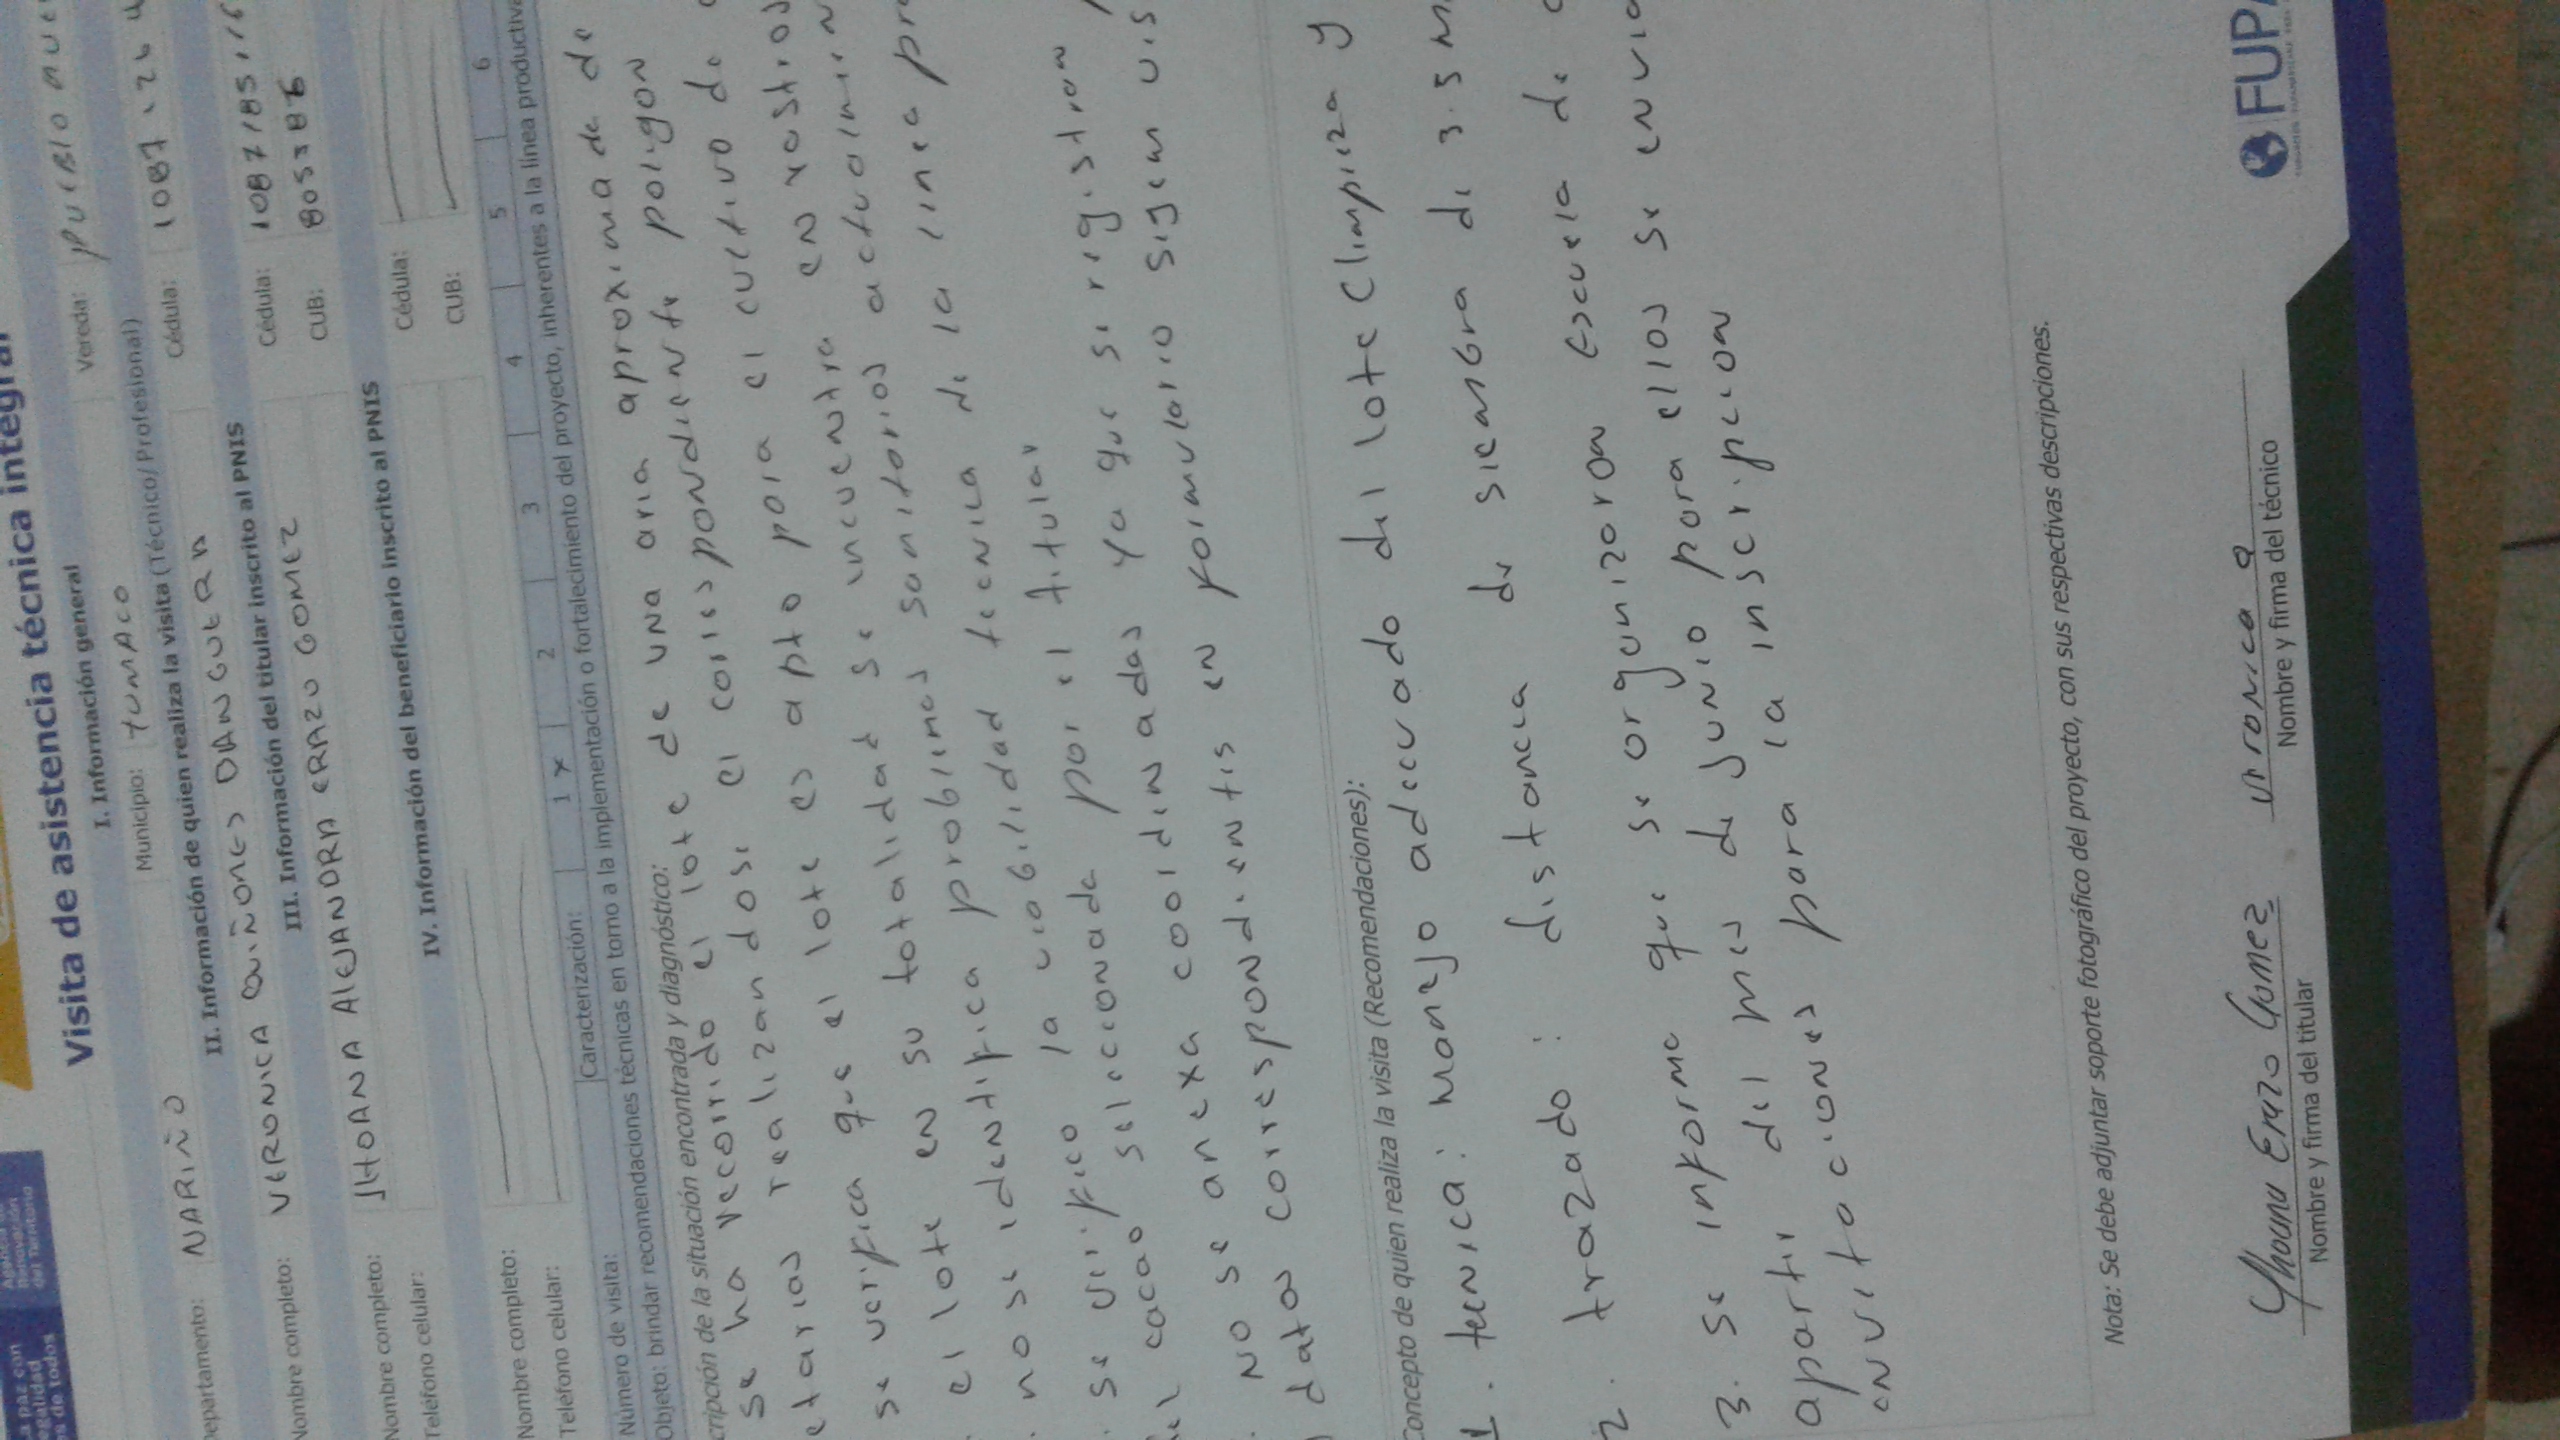 Renovación
del Territorio
paz con
legalidad
de todos
Visita de asistencia técnica integral
I. Información general
Departamento: NARIÑO Municipio: TUMACO Vereda: PUEBLO NUE
II. Información de quien realiza la visita (Técnico/ Profesional)
Nombre completo: VERONICA QUIÑONES DANGUERA Cédula: 1087
III. Información del titular inscrito al PNIS
Nombre completo: JHOANA ALEJANDRA ERAZO GOMEZ Cédula: 1087185116
Teléfono celular: CUB:
IV. Información del beneficiario inscrito al PNIS
Nombre completo: Cédula:
Teléfono celular: CUB:
Número de visita: Caracterización: 1 x 2 3 4 5 6
Objeto: brindar recomendaciones técnicas en torno a la implementación o fortalecimiento del proyecto, inherentes a la línea productiva
cripción de la situación encontrada y diagnóstico:
se ha recorrido el lote de una aria aproximada de
etarias realizandose el corespondiente poligon
se verifica que el lote es apto para el cultivo de
el lote en su totalidad se incuentra en rostrojo
no se identifica problemas sanitarios actualmen
. se verifico la viabilidad tecnica de la linea pr
del cacao seleccionada por el titular
. No se anexa coordinadas ya que se registran
datos correspondientes en formulario sigem vis
Concepto de quien realiza la visita (Recomendaciones):
1. tecnica: manejo adecuado del lote (limpieza y
2. trazado: distancia de siembra de 3.5 m
3. se informa que se organizaron escuela de c
apartir del mes de Junio para ellos se envia
invitaciones para la inscripcion
Nota: Se debe adjuntar soporte fotográfico del proyecto, con sus respectivas descripciones.
Jhoana Erazo Gomez
Nombre y firma del titular
veronica q
Nombre y firma del técnico
FUPA